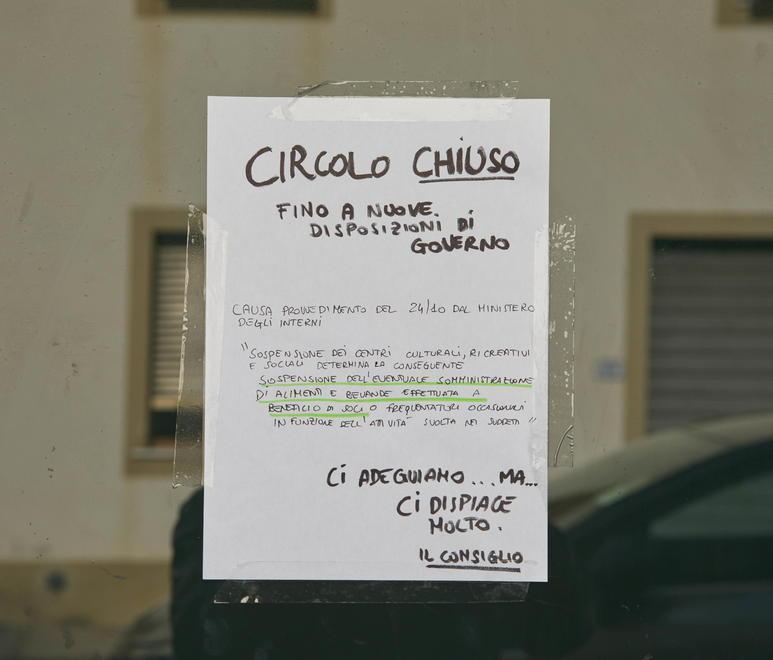 CIRCOLO CHIUSO
FINO A NUOVE.
DISPOSIZIONI DI
GOVERNO
CAUSA PROVVEDIMENTO DEL 24/10 DAL MINISTERO
DEGLI INTERNI
"SOSPENSIONE DEI CENTRI CULTURALI, RICREATIVI
E SOCIALI DETERMINA LA CONSEGUENTE
SOSPENSIONE DELL'EVENTUALE SOMMINISTRAZIONE
DI ALIMENTI E BEVANDE EFFETTUATA A
BENEFICIO DI SOCI O FREQUENTATORI OCCASIONALI
IN FUNZIONE DELL'ATTIVITÀ SVOLTA NEI SUDDETTI"
CI ADEGUIAMO... MA...
CI DISPIACE
MOLTO.
IL CONSIGLIO